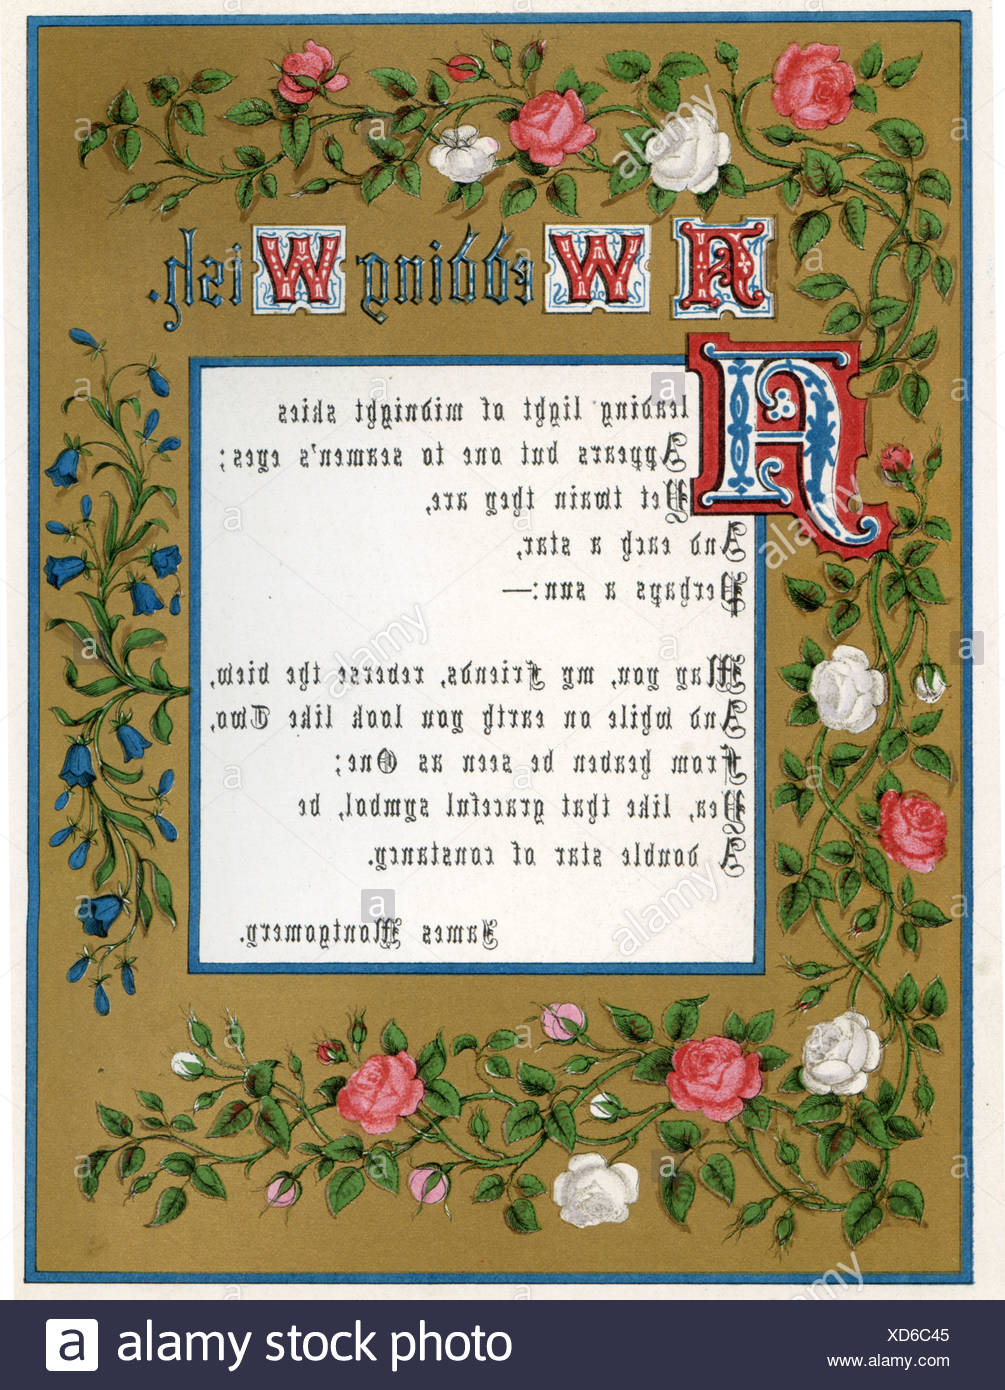 A Wedding Wish.
A leading light of midnight skies
Appears but one to seamen's eyes;
Yet twain they are,
And each a star,
Perhaps a sun:—
May you, my Friends, reverse the view,
And while on earth you look like Two,
From heaven be seen as One;
Yea, like that graceful symbol, be
A double star of constancy.
James Montgomery.
alamy
a
alamy stock photo
XD6C45
www.alamy.com